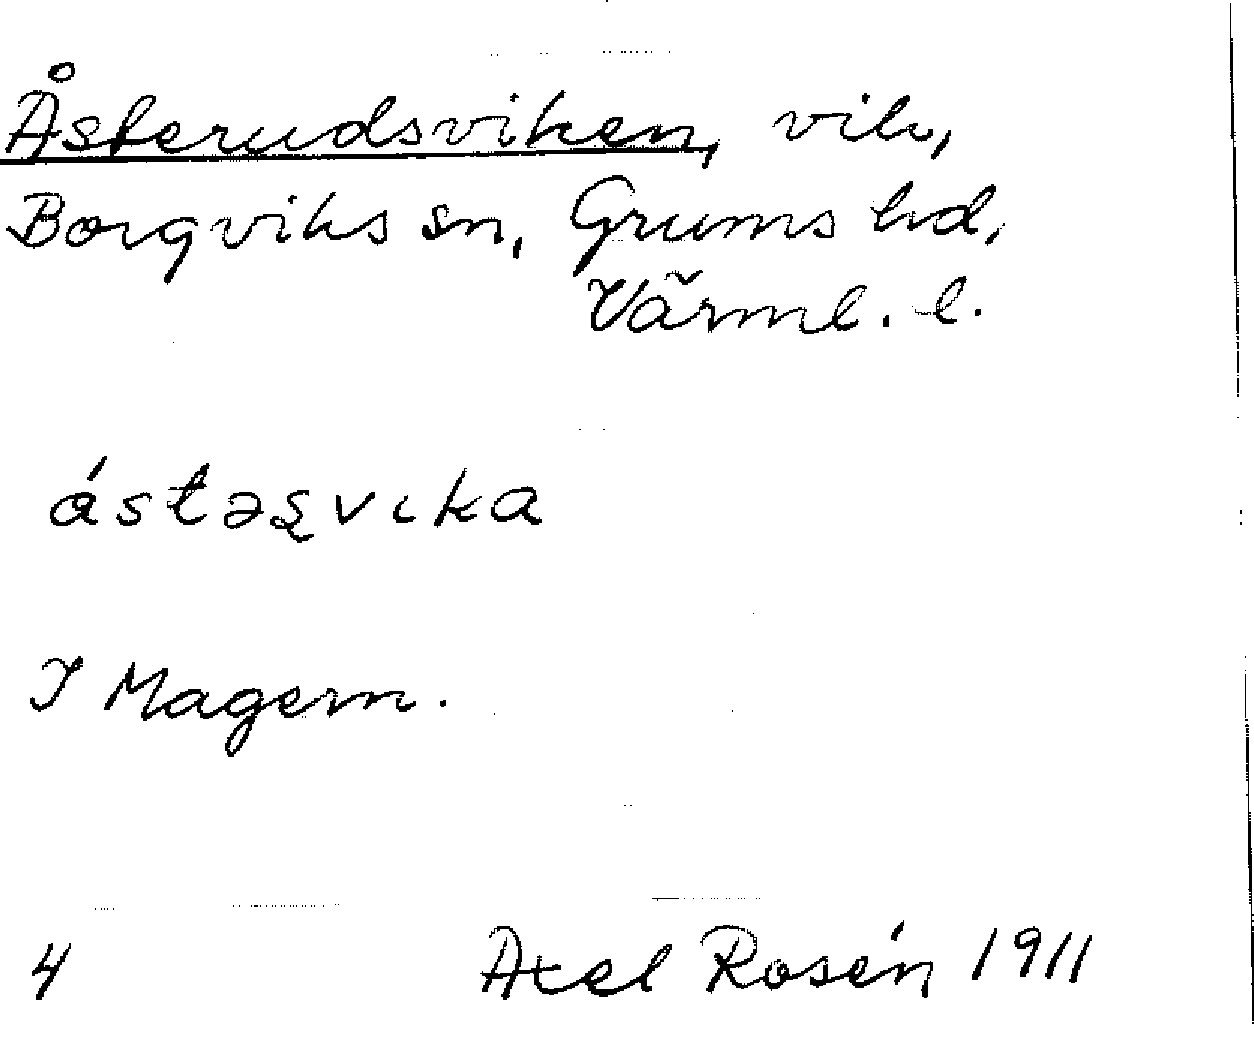 Åsterudsviken, vik,
Borgviks sn, Grums hd,
Värml. l.
ástəʂvıka
I Magern.
4 Axel Rosén 1911